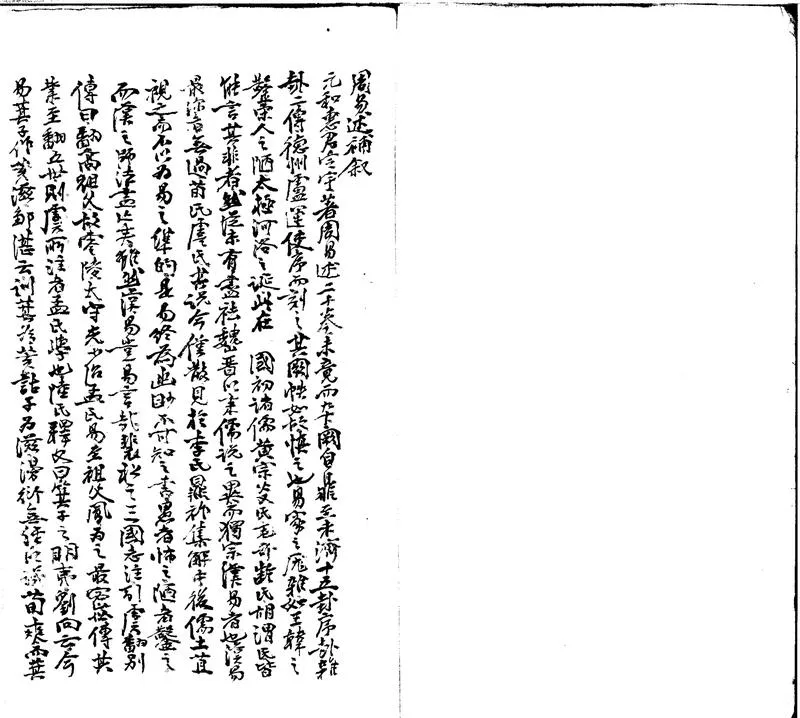 周易述補叙
元和惠君定宇著周易述二十卷未竟而卒闕自鼎至未濟十五卦序卦雜
卦二傳德州盧運使序而刻之其闕帙如故慎之也易家之厖雜如王韓之
鑿崇人之陋太極河洛之誕此在 國初諸儒黃宗炎氏毛奇齡氏胡渭氏皆
能言其非者然從未有盡袪魏晋以來儒說之異而獨宗漢易者也漢易
最深者無過荀氏虞氏其說今僅散見於李氏鼎祚集解中後儒土苴
視之而不以為易之準的是易終為幽眇不可知之書愚者怖之陋者鑿之
而漢之師法盡亡矣雖然漢易豈易言哉裴松之三國志注引虞翻別
傳曰翻高祖父故零陵太守光少治孟氏易至祖父鳳為之最密世傳其
業至翻五世則虞所注者孟氏學也陸氏釋文曰箕子之明夷劉向云今
易箕子作荄滋鄒湛云訓箕為荄詁子為滋漫衍無經以譏荀爽而其